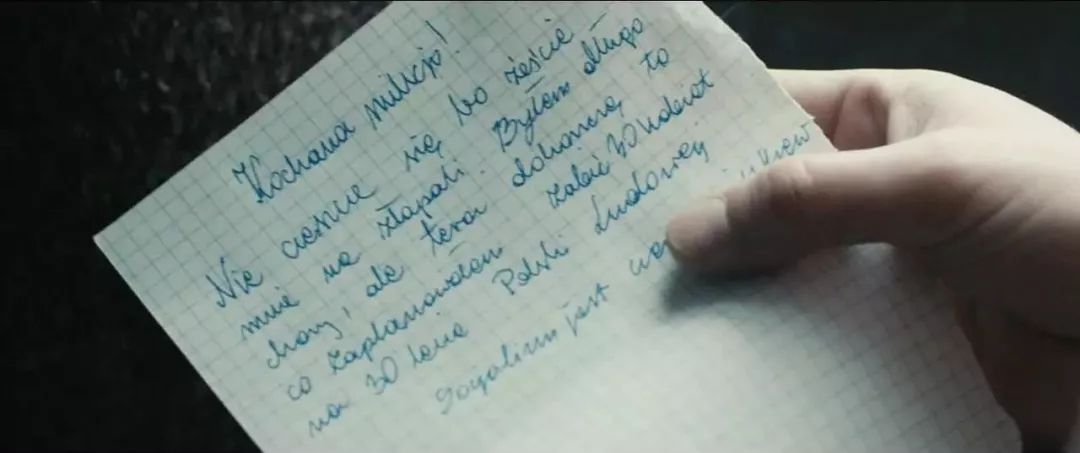 Kochana milicjo!
Nie cieszcie się, bo żeście
mnie nie złapali. Byłem długo
chory, ale teraz dokończę to
co zaplanowałem zabić 30 kobiet
na 30 lecie Polski Ludowej
Socjalizm jest